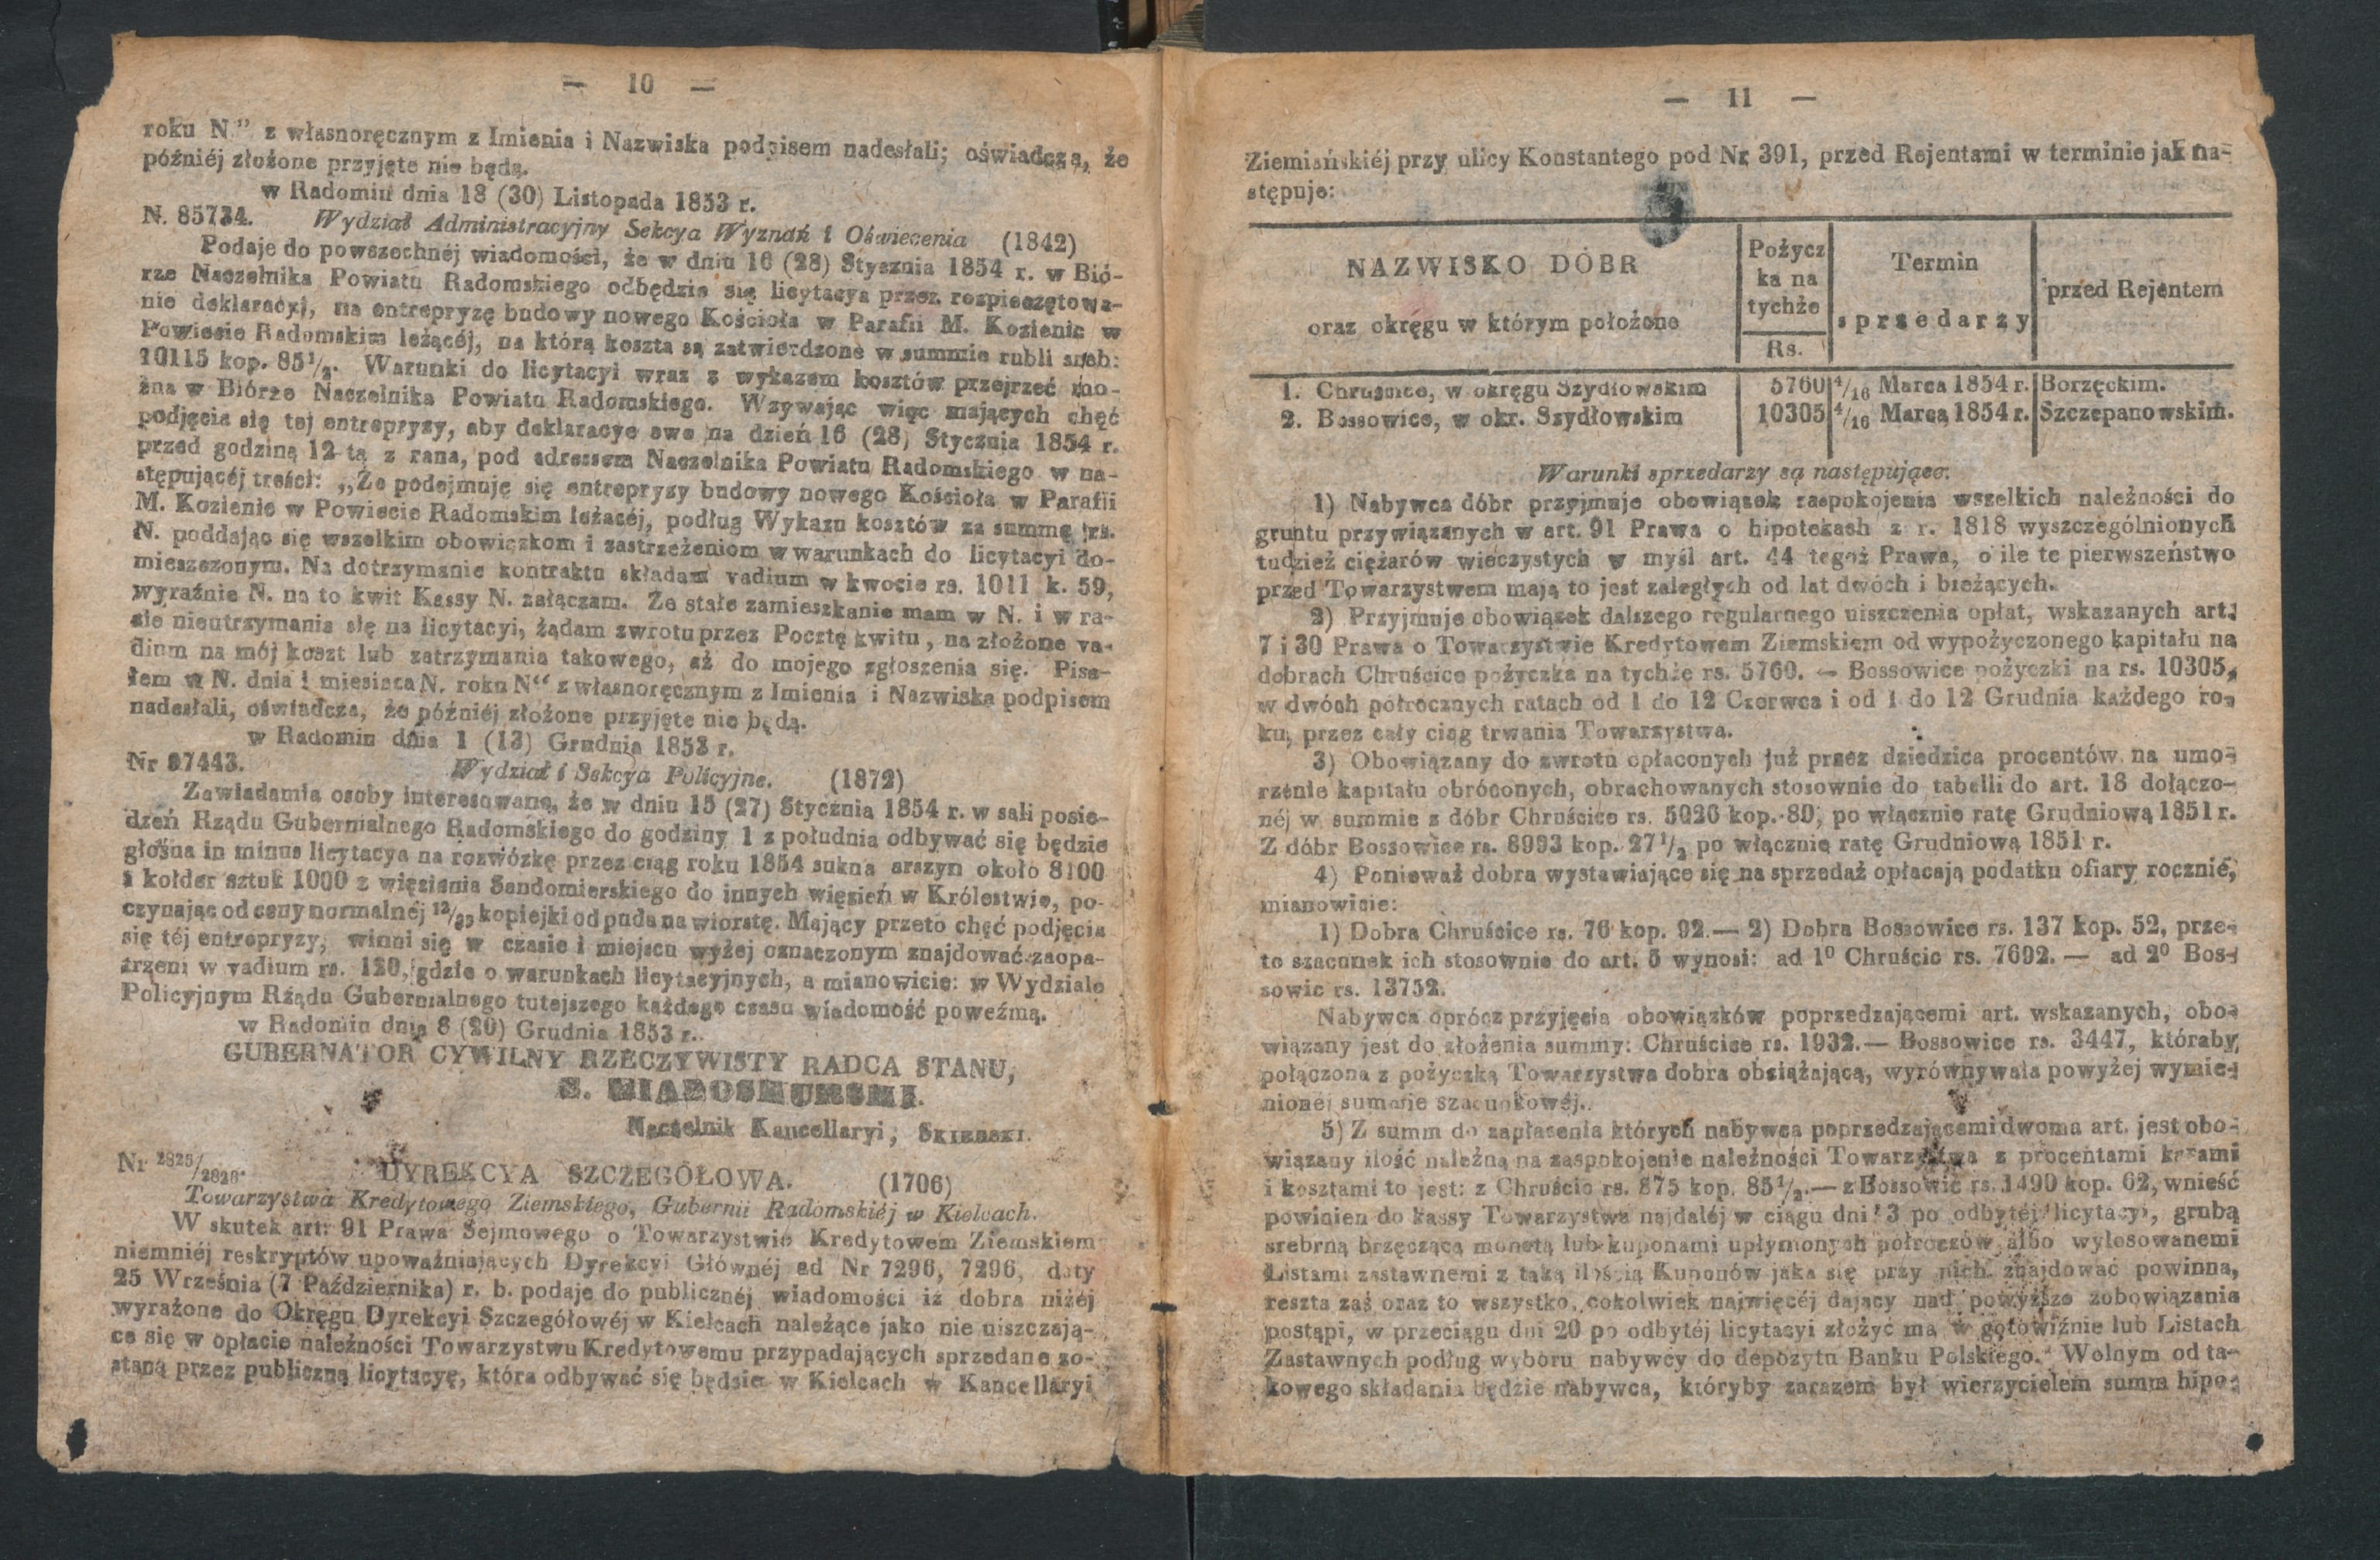 — 10 —
roku N." z własnoręcznym z Imienia i Nazwiska podpisem nadesłali; oświadcza, że
późniéj złożone przyjęte nie będą.
w Radomiu dnia 18 (30) Listopada 1853 r.
N. 85734. Wydział Administracyjny Sekcya Wyznań i Oświecenia (1842)
Podaje do powszechnéj wiadomości, że w dniu 16 (28) Stycznia 1854 r. w Bió-
rze Naczelnika Powiatu Radomskiego odbędzie się licytacya przez rozpieczętowa-
nie deklaracyj, na entrepryzę budowy nowego Kościoła w Parafii M. Kozienic w
Powiecie Radomskim leżącéj, na którą koszta są zatwierdzone w summie rubli sreb:
10115 kop. 85½. Warunki do licytacyi wraz z wykazem kosztów przejrzeć mo-
żna w Biórze Naczelnika Powiatu Radomskiego. Wzywając więc mających chęć
podjęcia się tej entrepryzy, aby deklaracye swe na dzień 16 (28) Stycznia 1854 r.
przed godziną 12-tą z rana, pod adressem Naczelnika Powiatu Radomskiego w na-
stępującéj treści: „Że podejmuję się entrepryzy budowy nowego Kościoła w Parafii
M. Kozienic w Powiecie Radomskim leżącéj, podług Wykazu kosztów za summę rs.
N. poddając się wszelkim obowiązkom i zastrzeżeniom w warunkach do licytacyi do-
mieszczonym. Na dotrzymanie kontraktu składam vadium w kwocie rs. 1011 k. 59,
wyraźnie N. na to kwit Kassy N. załączam. Że stałe zamieszkanie mam w N. i w ra-
zie nieutrzymania się na licytacyi, żądam zwrotu przez Pocztę kwitu, na złożone va-
dium na mój koszt lub zatrzymania takowego, aż do mojego zgłoszenia się. Pisa-
łem w N. dnia i miesiąca N. roku N" z własnoręcznym z Imienia i Nazwiska podpisem
nadesłali, oświadcza, że późniéj złożone przyjęte nie będą.
w Radomiu dnia 1 (13) Grudnia 1853 r.
Nr 87443. Wydział i Sekcya Policyjne. (1872)
Zawiadamia osoby interesowane, że w dniu 15 (27) Stycznia 1854 r. w sali posie-
dzeń Rządu Gubernialnego Radomskiego do godziny 1 z południa odbywać się będzie
głośna in minus licytacya na rozwózkę przez ciąg roku 1854 sukna arszyn około 8100
i kołder sztuk 1000 z więzienia Sandomierskiego do innych więzień w Królestwie, po-
czynając od ceny normalnéj kopiejki od puda na wiorstę. Mający przeto chęć podjęcia
się téj entrepryzy, winni się w czasie i miejscu wyżej oznaczonym znajdować zaopa-
trzeni w vadium rs. 120, gdzie o warunkach licytacyjnych, a mianowicie: w Wydziale
Policyjnym Rządu Gubernialnego tutejszego każdego czasu wiadomość poweźmą.
w Radomiu dnia 8 (20) Grudnia 1853 r.
GUBERNATOR CYWILNY RZECZYWISTY RADCA STANU,
Naczelnik Kancellaryi, SKIERSKI.
Nr 2825/2826. DYREKCYA SZCZEGÓŁOWA. (1706)
Towarzystwa Kredytowego Ziemskiego, Gubernii Radomskiéj w Kielcach.
W skutek art: 91 Prawa Sejmowego o Towarzystwie Kredytowem Ziemskiem
niemniéj reskryptów upoważniających Dyrekcyi Głównéj ad Nr 7296, 7296, daty
25 Września (7 Października) r. b. podaje do publicznéj wiadomości iż dobra niżéj
wyrażone do Okręgu Dyrekcyi Szczegółowéj w Kielcach należące jako nie uiszczają-
ce się w opłacie należności Towarzystwu Kredytowemu przypadających sprzedane zo-
staną przez publiczną licytacyę, która odbywać się będzie w Kielcach w Kancellaryi
— 11 —
Ziemiańskiéj przy ulicy Konstantego pod Nr 391, przed Rejentami w terminie jak na-
stępuje:
NAZWISKO DÓBR
oraz okręgu w którym położone
Pożycz
ka na
tychże
Rs.
Termin
sprzedarzy
przed Rejentem
1. Chruścice, w okręgu Szydłowskim 5760 4/16 Marca 1854 r. Borzęckim.
2. Bossowice, w okr. Szydłowskim 10305 4/16 Marca 1854 r. Szczepanowskim.
Warunki sprzedarzy są następujące:
1) Nabywca dóbr przyjmuje obowiązek zaspokojenia wszelkich należności do
gruntu przywiązanych w art. 91 Prawa o hipotekach z r. 1818 wyszczególnionych
tudzież ciężarów wieczystych w myśl art. 44 tegoż Prawa, o ile te pierwszeństwo
przed Towarzystwem mają to jest zaległych od lat dwóch i bieżących.
2) Przyjmuje obowiązek dalszego regularnego uiszczenia opłat, wskazanych art.
7 i 30 Prawa o Towarzystwie Kredytowem Ziemskiem od wypożyczonego kapitału na
dobrach Chruścice pożyczka na tychże rs. 5760. — Bossowice pożyczki na rs. 10305,
w dwóch półrocznych ratach od 1 do 12 Czerwca i od 1 do 12 Grudnia każdego ro-
ku, przez cały ciąg trwania Towarzystwa.
3) Obowiązany do zwrotu opłaconych już przez dziedzica procentów na umo-
rzenie kapitału obróconych, obrachowanych stosownie do tabelli do art. 18 dołączo-
néj w summie z dóbr Chruścice rs. 5026 kop. 80, po włącznie ratę Grudniową 1851 r.
Z dóbr Bossowice rs. 8993 kop. 27½ po włącznie ratę Grudniową 1851 r.
4) Ponieważ dobra wystawiające się na sprzedaż opłacają podatku ofiary rocznie,
mianowicie:
1) Dobra Chruścice rs. 76 kop. 92.— 2) Dobra Bossowice rs. 137 kop. 52, prze-
to szacunek ich stosownie do art. 5 wynosi: ad 1° Chruścic rs. 7692. — ad 2° Bos-
sowic rs. 13752.
Nabywca oprócz przyjęcia obowiązków poprzedzającemi art. wskazanych, obo-
wiązany jest do złożenia summy: Chruścice rs. 1932.— Bossowice rs. 3447, któraby
połączona z pożyczką Towarzystwa dobra obciążającą, wyrównywała powyżej wymie-
nionéj summie szacunkowéj.
5) Z summ do zapłacenia których nabywca poprzedzającemi dwoma art. jest obo-
wiązany ilość należną na zaspokojenie należności Towarzystwa z procentami karami
i kosztami to jest: z Chruścic rs. 875 kop. 85½.— z Bossowic rs. 1490 kop. 62, wnieść
powinien do kassy Towarzystwa najdaléj w ciągu dni 3 po odbytéj licytacyi, grubą
srebrną brzęczącą monetą lub kuponami upłynionych półroczów albo wylosowanemi
Listami zastawnemi z taką ilością Kuponów jaka się przy nich znajdować powinna,
reszta zaś oraz to wszystko, cokolwiek najwięcéj dający nad powyższe zobowiązania
postąpi, w przeciągu dni 20 po odbytéj licytacyi złożyć ma w gotowiźnie lub Listach
Zastawnych podług wyboru nabywcy do depozytu Banku Polskiego. Wolnym od ta-
kowego składania będzie nabywca, któryby zarazem był wierzycielem summ hipo-